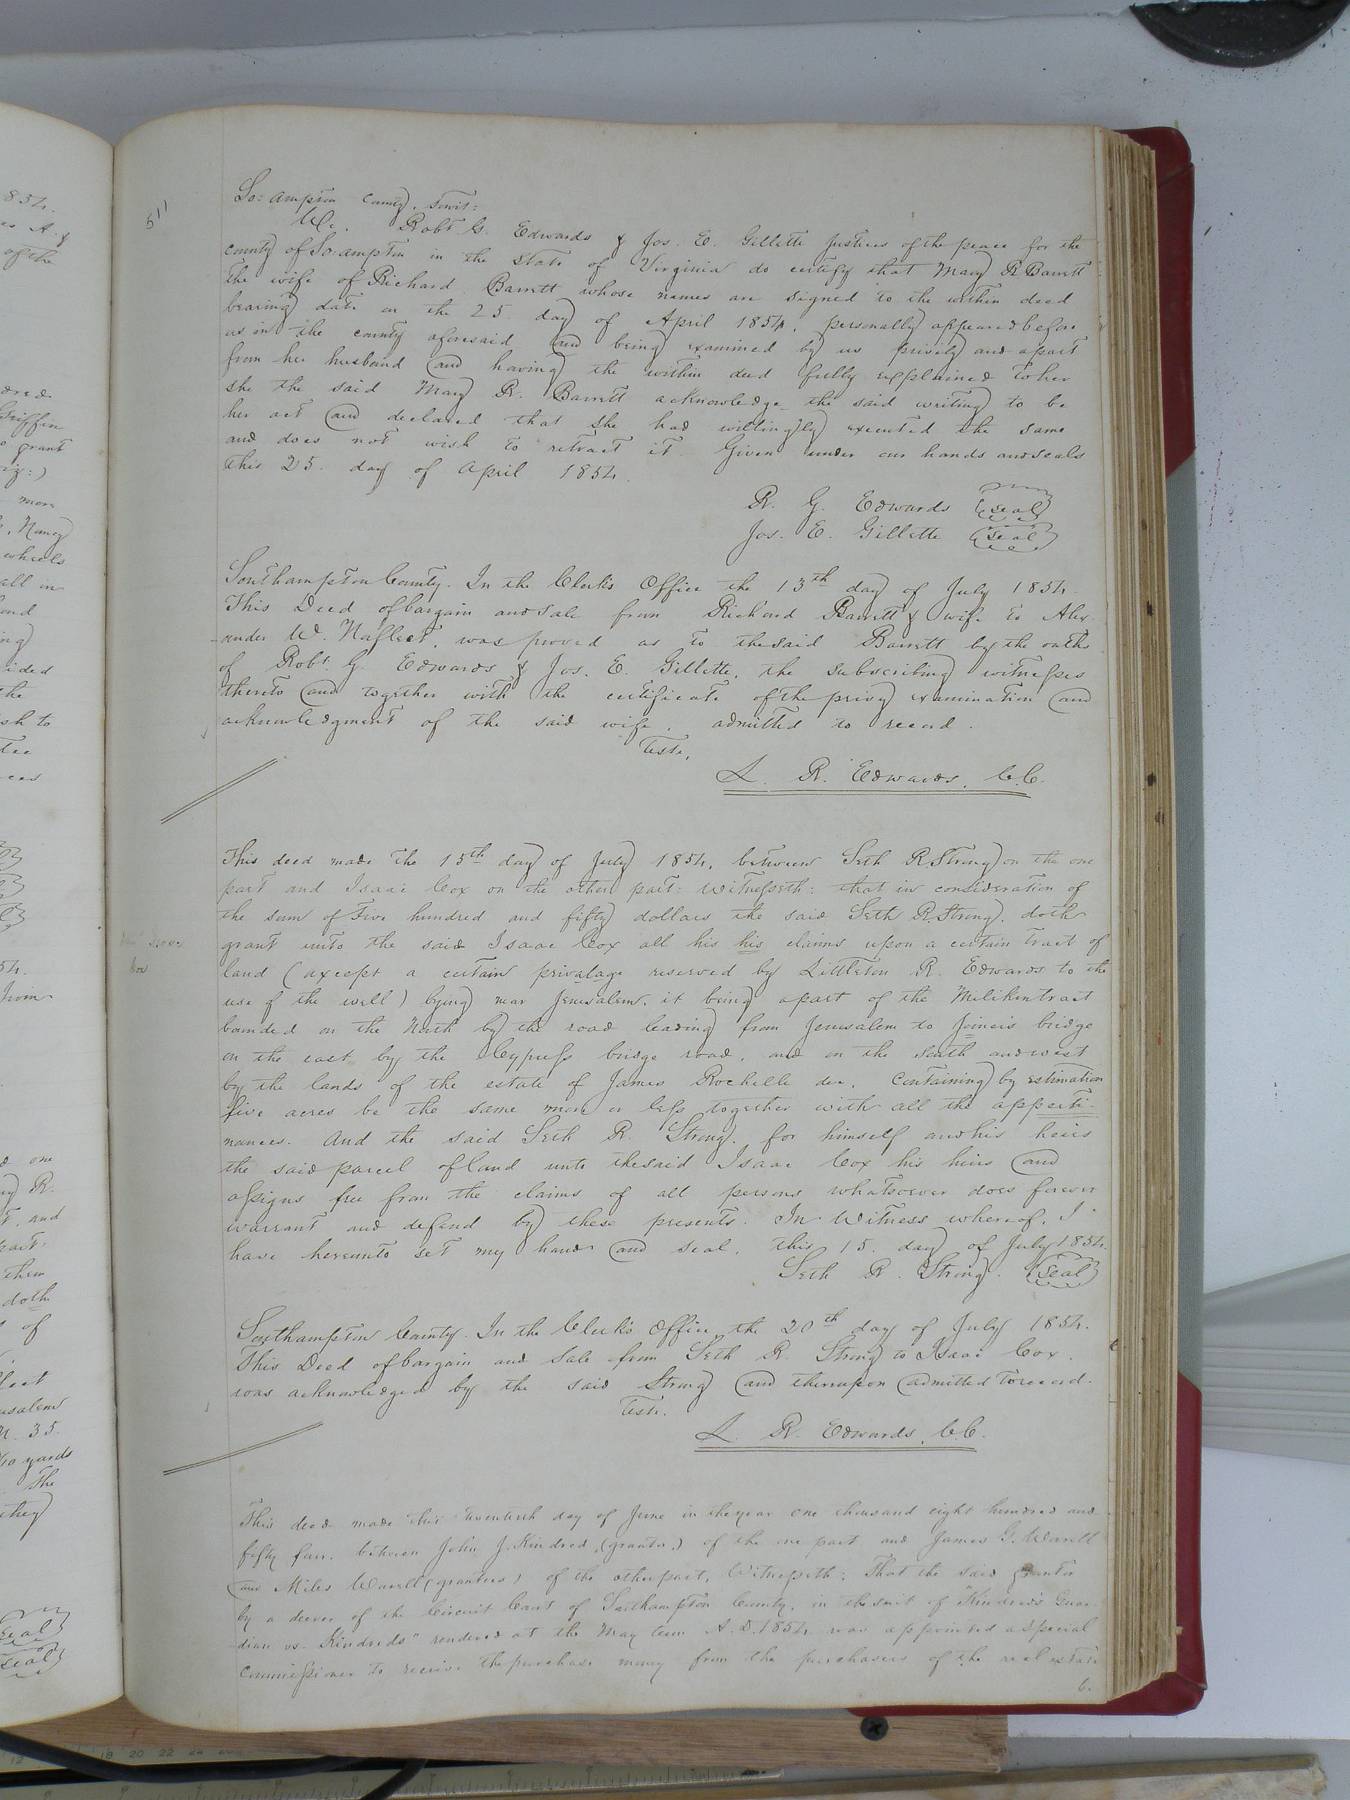 511
So: ampton County, towit:
We, Robt G. Edwards & Jos. E. Gillette Justices of the peace for the
county of So: ampton in the state of Virginia do certify that Mary R Barrett
the wife of Richard Barrett whose names are signed to the within deed
bearing date on the 25 day of April 1854, personally appeared before
us in the county aforesaid and being examined by us privily and apart
from her husband and having the within deed fully explained to her
she the said Mary R. Barrett acknowledge the said writing to be
her act and declared that she had willingly executed the same
and does not wish to retract it. Given under our hands and seals
this 25. day of April 1854.
R. G. Edwards (seal)
Jos. E. Gillette (seal)
Southampton County. In the Clerk's Office the 13th day of July 1854.
This Deed of bargain and sale from Richard Barrett & wife to Alex-
ander W. Nafleet, was proved as to the said Barrett by the oaths
of Robt. G. Edwards & Jos. E. Gillette, the subscribing witnesses
thereto and together with the certificate of the privy examination and
acknowledgment of the said wife, admitted to record.
Teste,
L. R. Edwards, C.C.
This deed made the 15th day of July 1854, between Seth R. Strong on the one
part and Isaac Cox on the other part: Witnesseth: that in consideration of
the sum of Five hundred and fifty dollars the said Seth R. Strong, doth
grant unto the said Isaac Cox all his his claims upon a certain tract of
land (axcept a certain privalage reserved by Littleton R. Edwards to the
use of the well) lying near Jerusalem, it being apart of the Miliken tract
bounded on the North by the road leading from Jerusalem to Joiner's bridge
on the east by the Cypress bridge road, and on the South and west
by the lands of the estate of James Rochelle dec. Containing by estimation
five acres be the same more or less together with all the apperti-
nances. And the said Seth R. Strong, for himself and his heirs
the said parcel of land unto the said Isaac Cox his heirs and
assigns free from the claims of all persons whatsoever does forever
warrant and defend by these presents. In Witness whereof, I
have hereunto set my hand and seal, this 15. day of July 1854.
Seth R. Strong. (seal)
Southampton County. In the Clerk's Office the 20th day of July 1854.
This Deed of bargain and Sale from Seth R. Strong to Isaac Cox,
was acknowledged by the said Strong and thereupon admitted to record.
Teste.
L. R. Edwards, C.C.
This deed made this twentieth day of June in the year one thousand eight hundred and
fifty four, between John J. Kindred, (grantor,) of the one part and James G. Worrell
and Miles Worrell (grantees) of the other part, Witnesseth: That the said grantor
by a decree of the Circuit Court of Southampton County, in the suit of "Kindred's Guar-
dian vs. Kindreds" rendered at the May term A.D. 1854 was appointed a special
commissioner to receive the purchase money from the purchasers of the real estate